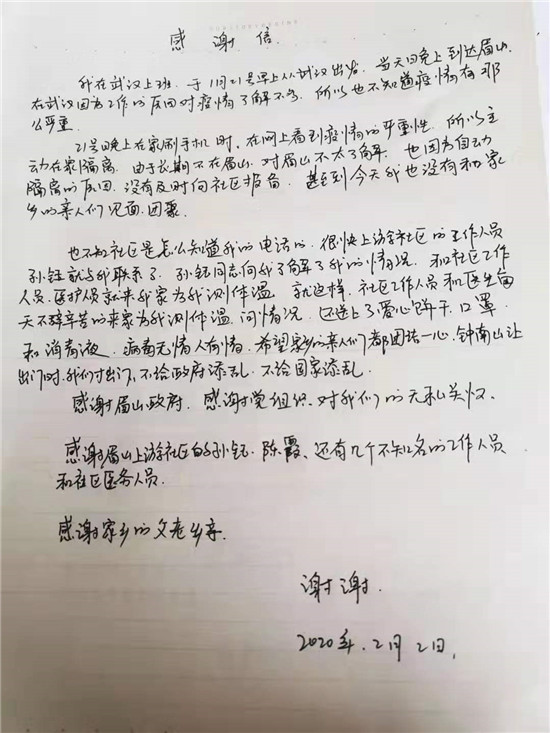 感谢信.
我在武汉上班. 于1月21号早上从武汉出发. 当天回晚上到达眉山.
在武汉因为工作的原因对疫情了解不多. 所以也不知道疫情有那
么严重.
21号晚上在家刷手机时, 在网上看到疫情的严重性. 所以主
动在家隔离. 由于长期不在眉山. 对眉山不太了解. 也因为自动
隔离的原因. 没有及时向社区报备. 甚至到今天我也没有和家
乡的亲人们见面. 团聚.
也不知社区是怎么知道我的电话的. 很快上游社区的工作人员
孙钰就与我联系了. 孙钰同志向我了解了我的情况. 和社区工作
人员. 医护人员就来我家为我测体温. 就这样. 社区工作人员和医生每
天不辞辛苦的来家为我测体温. 问情况. 还送上了爱心饼干. 口罩.
和消毒液. 病毒无情人有情. 希望家乡的亲人们都团结一心, 钟南山让
出门时, 我们才出门. 不给政府添乱. 不给国家添乱.
感谢眉山政府. 感谢党组织. 对我们的无私关怀.
感谢眉山上游社区的孙钰. 陈霞、还有几个不知名的工作人员
和社区医务人员.
感谢家乡的父老乡亲.
谢谢.
2020年. 2月2日.